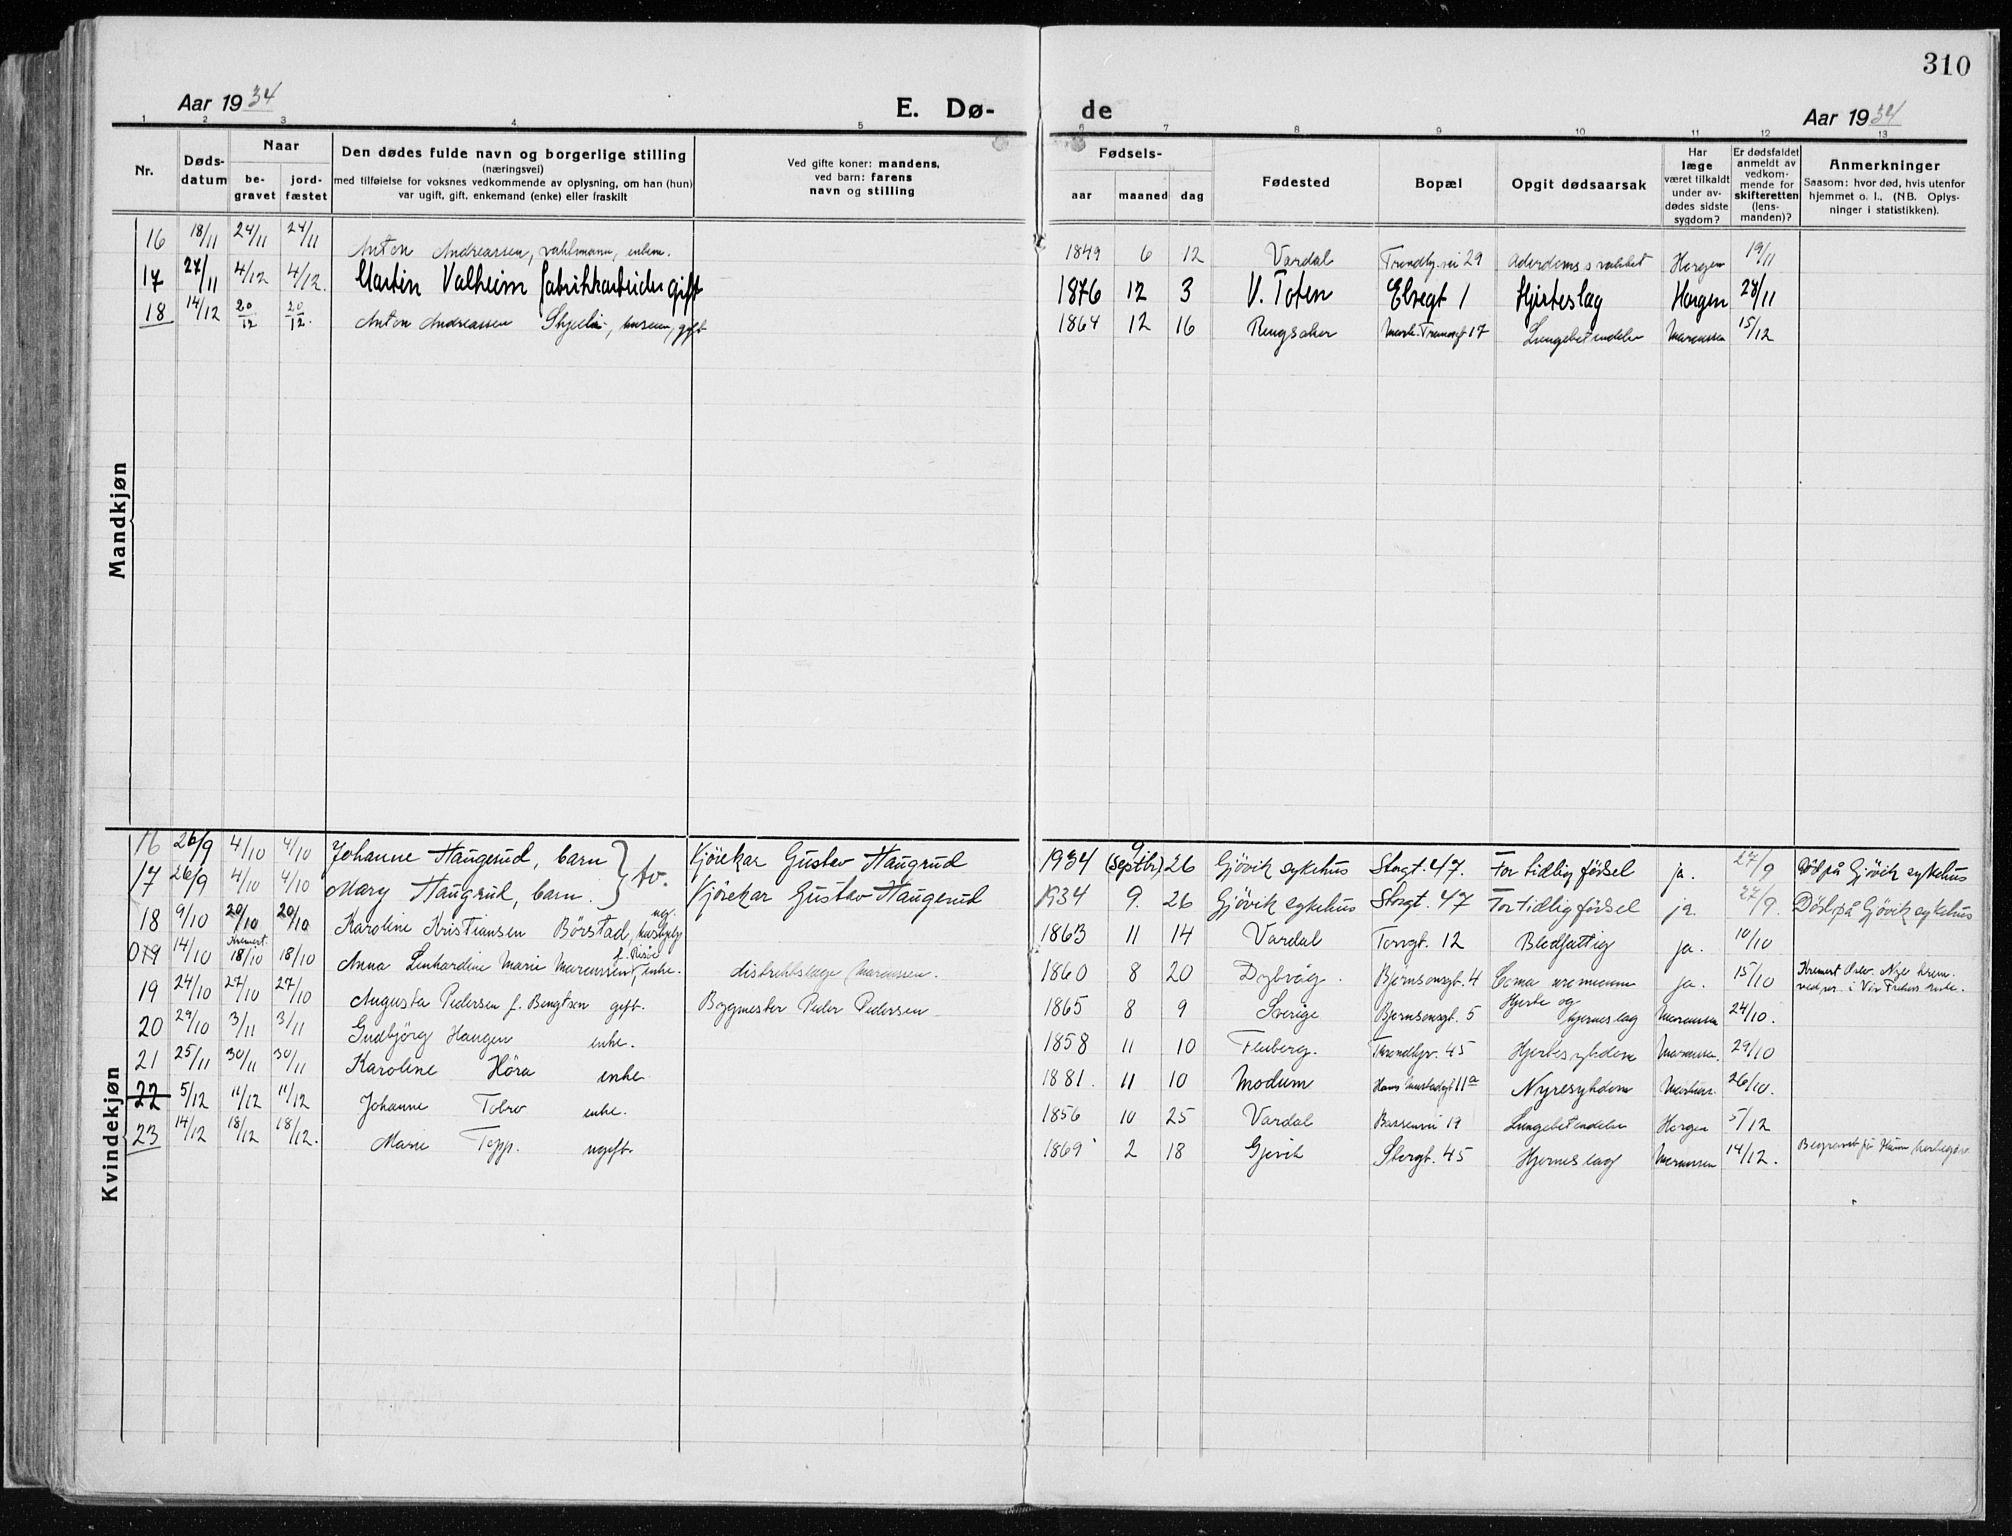 310
Aar 1934 E. Dø- de Aar 1934
1 2 3 4 5 6 7 8 9 10 11 12 13
Nr. Dødsdatum Naar begravet jordfæstet
Den dødes fulde navn og borgerlige stilling
(næringsvei)
med tilføielse for voksnes vedkommende av oplysning, om han (hun)
var ugift, gift, enkemand (enke) eller fraskilt
Ved gifte koner: mandens,
ved barn: farens
navn og stilling
Fødsels- aar maaned dag
Fødested Bopæl Opgit dødsaarsak
Har
læge
været tilkaldt
under av-
dødes sidste
sygdom?
Er dødsfaldet
anmeldt av
vedkom-
mende for
skifteretten
(lens-
manden)?
Anmerkninger
Saasom: hvor død, hvis utenfor
hjemmet o. l., (NB. Oplys-
ninger i statistikken).
Mandkjøn
16 18/11 24/11 24/11 Anton Andreassen, enkem. 1849 6 12 Vardal 29 Horgen 19/11
17 27/11 4/12 4/12. Martin Valheim fabrikkarbeider gift 1876 12 3 V. Toten Elvegt 1 Hjerteslag Horgen 27/11
18 14/12 20/12 20/12. Anton Andreassen gift 1864 12 16 Ringsaker 17 Lungebetendelse Marcussen 15/12
Kvindekjøn
16 26/9 4/10 4/10 Johanne Haugerud, barn } tv. Kjørekar Gustav Haugrud 1934 9 (Septbr) 26 Gjøvik sykehus Storgt. 47. For tidlig fødsel ja. 27/9 Död på Gjövik sykehus
17 26/9 4/10 4/10 Mary Haugrud, barn. Kjørekar Gustav Haugerud 1934 9. 26 Gjövik sykehus Storgt. 47 For tidlig fødsel ja. 27/9. Död på Gjövik sykehus
18 9/10 20/10 20/10 Karoline Kristiansen Börstad, ug. 1863 11 14 Vardal Torvgt. 12 Blodfattig ja. 10/10
019 14/10 Kremert 18/10 18/10 Anna Lenhardine Marie Marcussen, f. Risöe enke. distriktslæge Marcussen. 1860 8 20 Dybvåg. Bjørnsonsgt. 4 Coma ja. 15/10 Kremert
19 24/10 27/10 27/10 Augusta Pedersen f. Bengtson gift. Bygmester Peder Pedersen 1865 8 9 Sverige Bjørnsonsgt. 5 Hjerte og hjerneslag Marcussen 24/10.
20 29/10 3/11 3/11 Gudbjörg Haugen enke. 1858 11 10 Fluberg. 45 Hjertesykdom Marcussen. 29/10
21 25/11 30/11 30/11 Karoline Höra enke 1881. 11 10 Modum Hans Mustadsgt 11a Nyresykdom 26/10.
22 5/12 11/12 11/12 Johanne Tobro enke. 1856 10 25 Vardal 19 Lungebetendelse Horgen 5/12
23 14/12 18/12 18/12. Marie Topp. ugift. 1869 2 18 Gjøvik Storgt. 45 Hjerneslag Marcussen 14/12. Begravet på